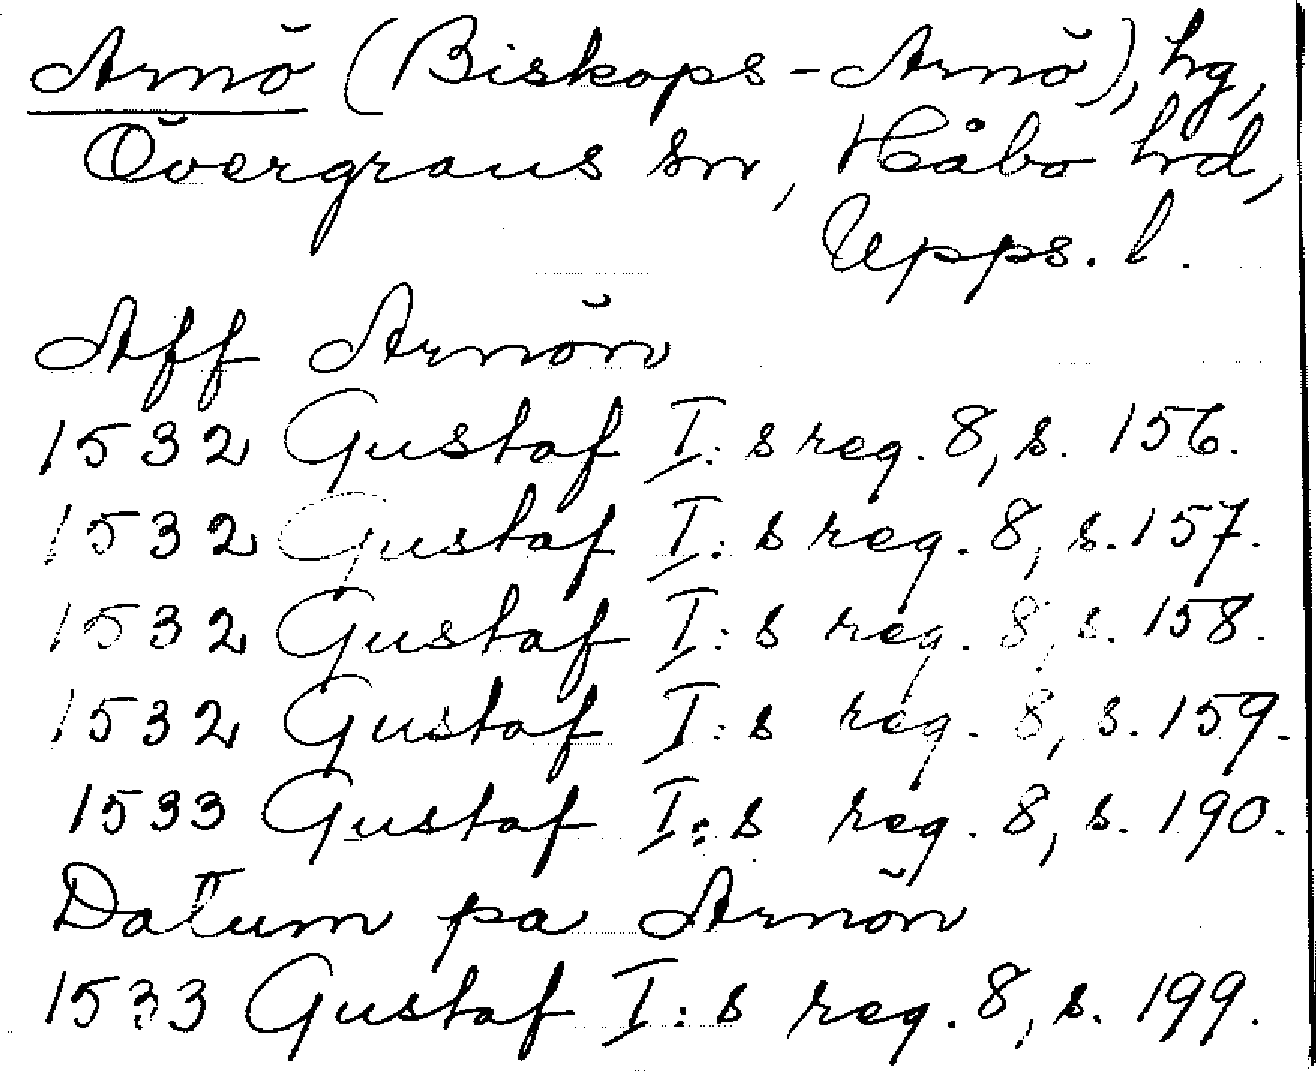 Arnö (Biskops-Arnö), hg,
Övergrans sn, Håbo hd,
Upps. l.
Aff Arnön
1532 Gustaf I:s reg. 8, s. 156.
1532 Gustaf I:s reg. 8, s. 157.
1532 Gustaf I:s reg. 8, s. 158.
1532 Gustaf I:s reg. 8, s. 159.
1533 Gustaf I:s reg. 8, s. 190.
Datum pa Arnön
1533 Gustaf I:s reg. 8, s. 199.